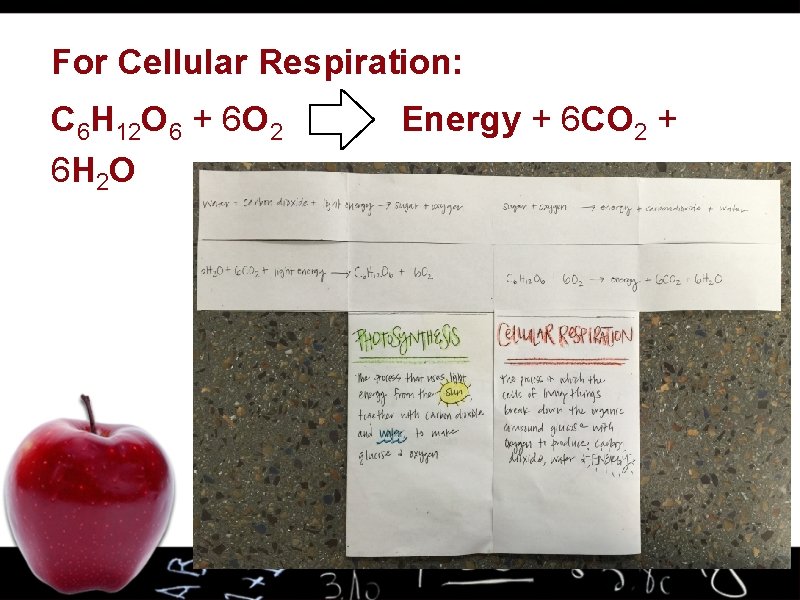 For Cellular Respiration:
C6H12O6 + 6O2 Energy + 6CO2 +
6H2O
Water + carbon dioxide + light energy → sugar + oxygen
sugar + oxygen → energy + carbon dioxide + water
H2O + 6CO2 + light energy → C6H12O6 + 6O2
C6H12O6 6O2 → energy + 6CO2 + 6H2O
PHOTOSYNTHESIS
The process that uses light
energy from the sun
together with carbon dioxide
and water to make
glucose & oxygen
CELLULAR RESPIRATION
The process in which the
cells of living things
break down the organic
compound glucose with
oxygen to produce carbon
dioxide, water & ENERGY